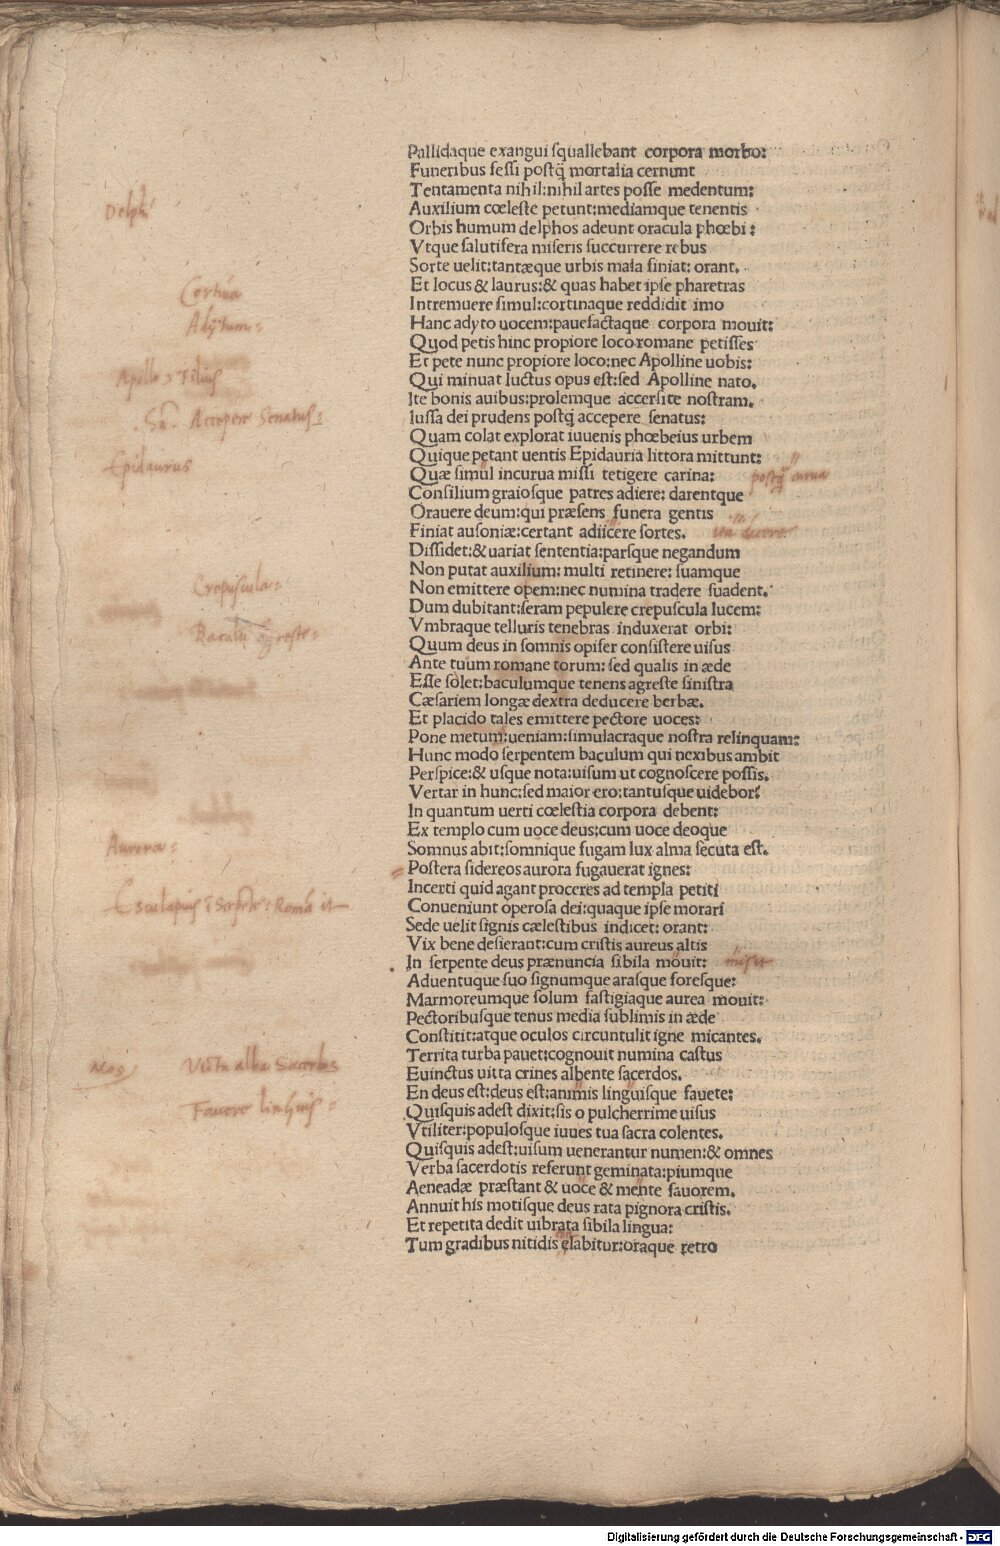 Pallidaque exangui squallebant corpora morbo:
Funeribus fessi postq̃ mortalia cernunt
Tentamenta nihil:nihil artes posse medentum:
Delphi
Auxilium cœleste petunt:mediamque tenentis
Orbis humum delphos adeunt oracula phœbi:
Vtque salutifera miseris succurrere rebus
Sorte uelit:tantæque urbis mala finiat: orant.
Et locus & laurus:& quas habet ipse pharetras
Cortina
Intremuere simul:cortinaque reddidit imo
Adytum
Hanc adyto uocem:pauefactaque corpora mouit:
Quod petis hinc propiore loco romane petisses
Et pete nunc propiore loco:nec Apolline uobis:
Apollo Filius
Qui minuat luctus opus est:sed Apolline nato.
Ite bonis auibus:prolemque accersite nostram.
Accepere Senatus
Iussa dei prudens postq̃ accepere senatus:
Quam colat explorat iuuenis phœbeius urbem
Epidaurus
Quique petant uentis Epidauria littora mittunt:
Quæ simul incurua missi tetigere carina:
postq̃ curua
Consilium graiosque patres adiere: darentque
Orauere deum:qui præsens funera gentis
Finiat ausoniæ:certant adiicere sortes.
ita dicere
Dissidet:& uariat sententia:parsque negandum
Non putat auxilium: multi retinere: suamque
Crepuscula
Non emittere opem:nec numina tradere suadent.
Dum dubitant:seram pepulere crepuscula lucem:
Baculū agreste
Vmbraque telluris tenebras induxerat orbi:
Quum deus in somnis opifer consistere uisus
Ante tuum romane torum: sed qualis in æde
Esse solet:baculumque tenens agreste sinistra
Cæsariem longæ dextra deducere berbæ.
Et placido tales emittere pectore uoces:
Pone metum:ueniam:simulacraque nostra relinquam:
Hunc modo serpentem baculum qui nexibus ambit
Perspice:& usque nota:uisum ut cognoscere possis.
Vertar in hunc:sed maior ero:tantusque uidebor:
In quantum uerti cœlestia corpora debent:
Ex templo cum uoce deus:cum uoce deoque
Aurora
Somnus abit:somnique fugam lux alma secuta est.
Postera sidereos aurora fugauerat ignes:
Incerti quid agant proceres ad templa petiti
Esculapius Romā it
Conueniunt operosa dei:quaque ipse morari
Sede uelit signis cælestibus indicet: orant:
Vix bene desierant:cum cristis aureus altis
In serpente deus prænuncia sibila mouit:
misit
Aduentuque suo signumque arasque foresque:
Marmoreumque solum fastigiaque aurea mouit:
Pectoribusque tenus media sublimis in æde
Constitit:atque oculos circuntulit igne micantes.
Territa turba pauet:cognouit numina castus
Mos Vitta alba Sacerdos
Euinctus uitta crines albente sacerdos.
En deus est:deus est:animis linguisque fauete:
Fauere linguis
Quisquis adest dixit:sis o pulcherrime uisus
Vtiliter:populosque iuues tua sacra colentes.
Quisquis adest:uisum uenerantur numen:& omnes
Verba sacerdotis referunt geminata:piumque
Aeneadæ præstant & uoce & mente fauorem.
Annuit his motisque deus rata pignora cristis.
Et repetita dedit uibrata sibila lingua:
Tum gradibus nitidis elabitur:oraque retro
Digitalisierung gefördert durch die Deutsche Forschungsgemeinschaft - DFG